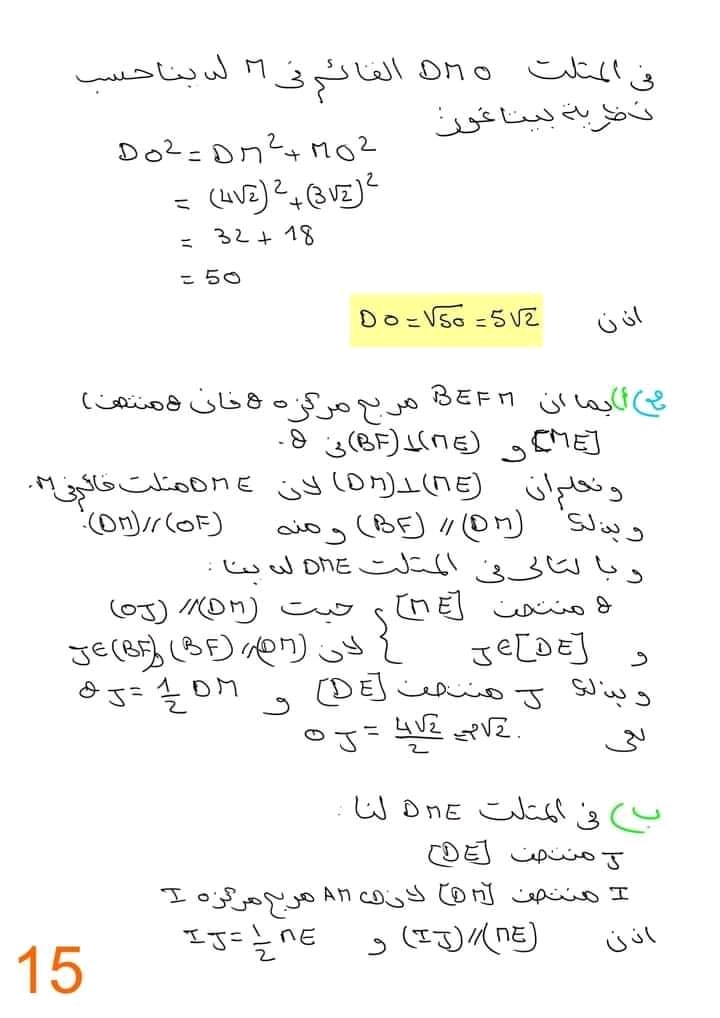 في المثلث DMO القائم في M لدينا حسب
نظرية بيتاغور:
DO² = DM² + MO²
= (4√2)² + (3√2)²
= 32 + 18
= 50
اذن DO = √50 = 5√2
أ) بما ان BEFM مربع مركزه O فان O منتصف
[ME] و (BF)⊥(ME) في O.
ونعلم ان (DM)⊥(ME) لان DME مثلث قائم في M.
وبذلك (BF) // (DM) ومنه (DM)//(OF).
وبالتالي في المثلث DME لدينا:
O منتصف [ME] حيث (OJ) //(DM)
و J∈[DE] لان (BF)//(DM) و J∈(BF)
وبذلك J منتصف [DE] و OJ = 1/2 DM
يعني OJ = 4√2/2 = 2√2.
ب) في المثلث DME لنا:
J منتصف [DE]
I منتصف [DM] لان AMCD مربع مركزه I
اذن (IJ)//(ME) و IJ = 1/2 ME
15